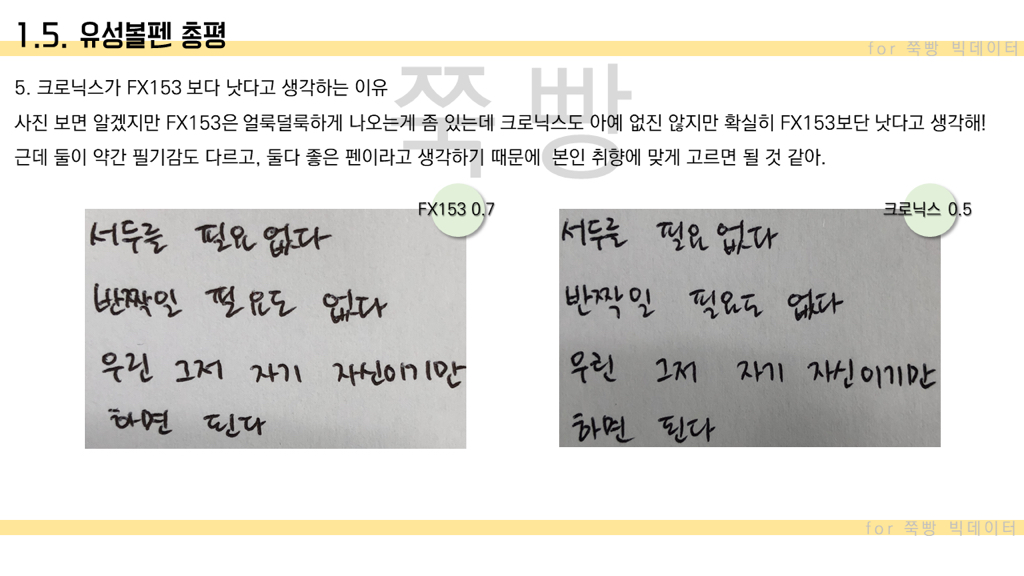 1.5. 유성볼펜 총평
for 쭉빵 빅데이터
5. 크로닉스가 FX153 보다 낫다고 생각하는 이유
사진 보면 알겠지만 FX153은 얼룩덜룩하게 나오는게 좀 있는데 크로닉스도 아예 없진 않지만 확실히 FX153보단 낫다고 생각해!
근데 둘이 약간 필기감도 다르고, 둘다 좋은 펜이라고 생각하기 때문에 본인 취향에 맞게 고르면 될 것 같아.
쭉빵
FX153 0.7
서두를 필요 없다
반짝일 필요도 없다
우린 그저 자기 자신이기만
하면 된다
크로닉스 0.5
서두를 필요 없다
반짝일 필요도 없다
우린 그저 자기 자신이기만
하면 된다
for 쭉빵 빅데이터